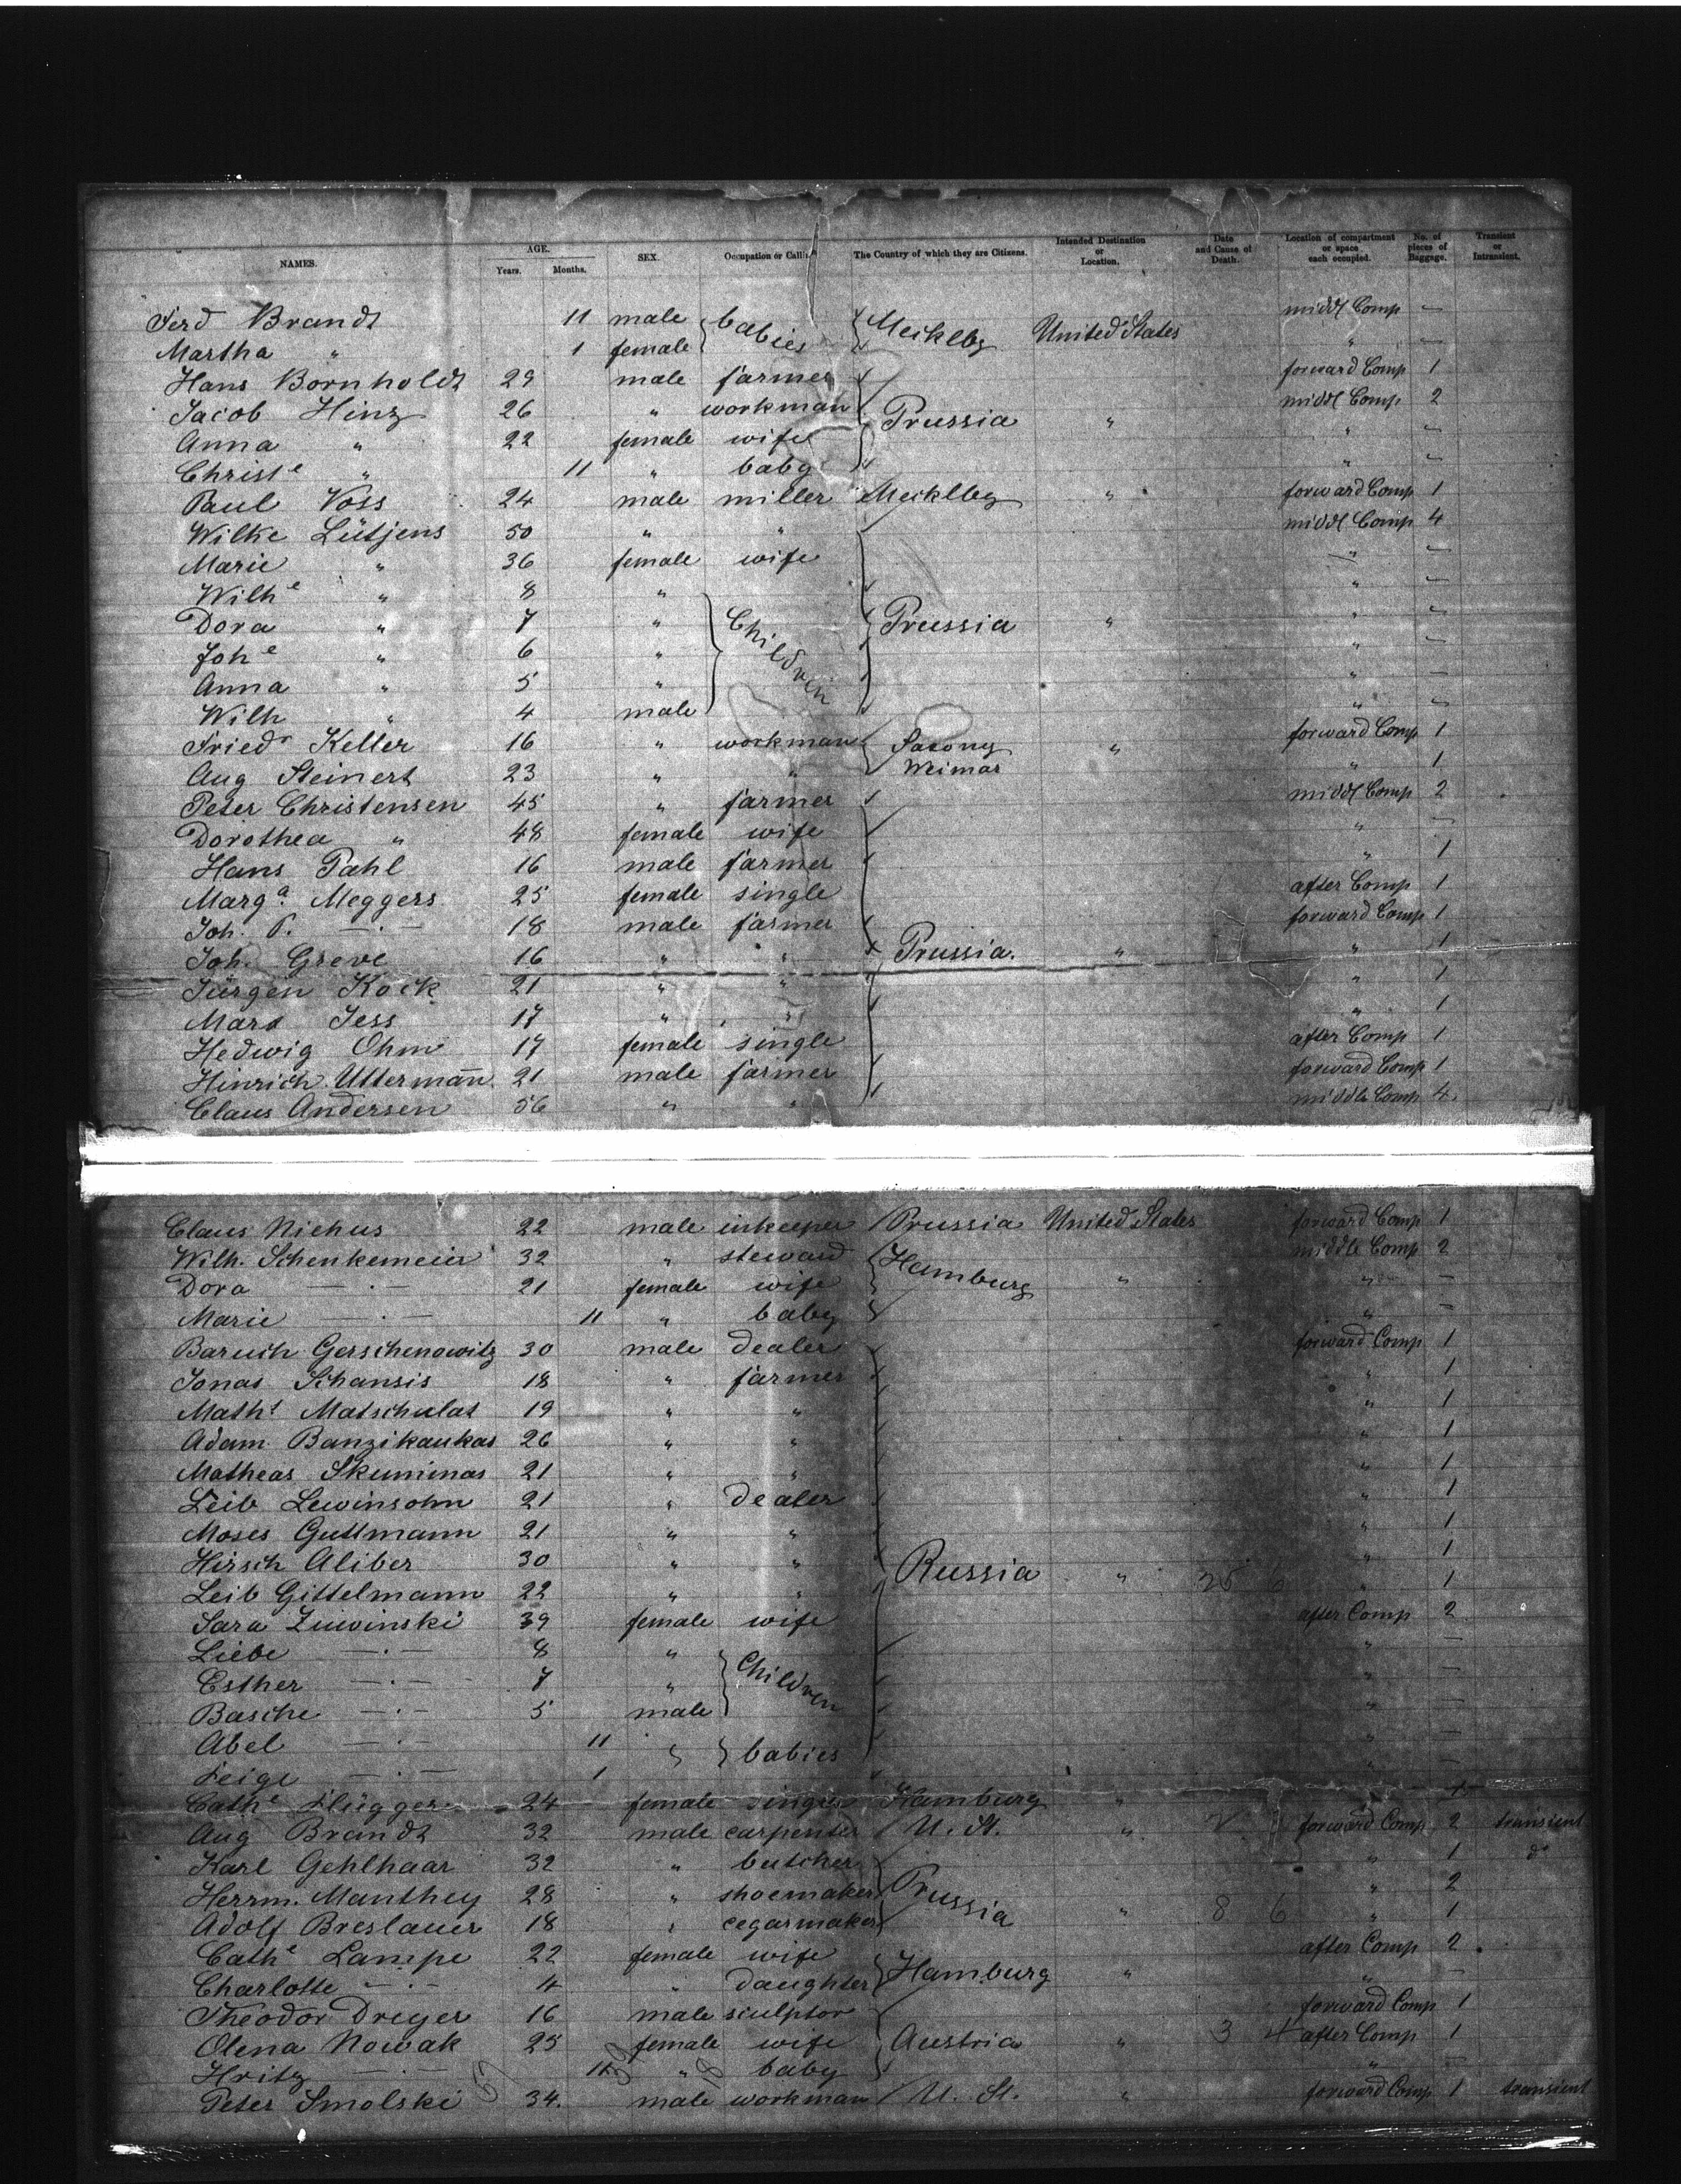 NAMES. AGE. Years. Months. SEX. Occupation or Calling The Country of which they are Citizens. Intended Destination or Location. Date and Cause of Death. Location of compartment or space each occupied. No. of pieces of Baggage. Transient or Intransient.
Ferd Brandt 11 male babies Mecklbg United States middl Comp —
Martha " 1 female " —
Hans Bornholdt 29 male farmer forward Comp 1
Jacob Hinz 26 " workman Prussia " middl Comp 2
Anna " 22 female wife " —
Christe " 11 " baby " —
Paul Voss 24 male miller Mecklbg " forward Comp 1
Wilke Lütjens 50 " " middl Comp 4
Marie " 36 female wife " —
Wilhe " 8 " " —
Dora " 7 " Children Prussia " " —
Johe " 6 " " —
Anna " 5 " " —
Wilh " 4 male " —
Friedr Keller 16 " workman Saxony " forward Comp 1
Aug Steinert 23 " " Weimar " 1
Peter Christensen 45 " farmer middl Comp 2
Dorothea " 48 female wife " —
Hans Pahl 16 male farmer " 1
Marga. Meggers 25 female single after Comp 1
Joh. P. —.— 18 male farmer forward Comp 1
Joh. Greve 16 " " Prussia. " " 1
Jürgen Kock 21 " " " 1
Marx Jess 17 " " " 1
Hedwig Ohm 17 female single after Comp 1
Hinrich Uttermān 21 male farmer forward Comp 1
Claus Andersen 56 " " middle Comp 4
Claus Niehus 22 male inkeeper Prussia United States forward Comp 1
Wilh. Schenkemeier 32 " steward Hamburg middle Comp 2
Dora —.— 21 female wife " " —
Marie —.— 11 " baby " —
Baruch Gerschenowitz 30 male dealer forward Comp 1
Jonas Schansis 18 " farmer " 1
Maths Matschulat 19 " " " 1
Adam Banzikaukas 26 " " " 1
Matheas Skuminas 21 " " " 1
Leib Lewinsohn 21 " dealer " 1
Moses Guttmann 21 " " " 1
Hirsch Aliber 30 " " " 1
Leib Gittelmann 22 " " Russia " " 1
Sara Ziuwinski 39 female wife after Comp 2
Liebe —.— 8 " " —
Esther —.— 7 " Children " —
Basche —.— 5 male " —
Abel —.— 11 " babies " —
Feige —.— 1 " —
Cathe Flügger 24 female single Hamburg "
Aug Brandt 32 male carpenter U. St. " forward Comp 2 transient
Karl Gehlhaar 32 " butcher " 1 do
Herrm. Manthey 28 " shoemaker Prussia " 2
Adolf Breslauer 18 " cegarmaker " 8 6 " 1
Cathe Lampe 22 female wife after Comp 2
Charlotte —.— 4 " daughter Hamburg " " —
Theodor Dreyer 16 male sculptor forward Comp 1
Olena Nowak 25 female wife Austria " 3 4 after Comp 1
Hritz —.— 11 " baby " —
Peter Smolski 34. male workman U. St. " forward Comp 1 transient